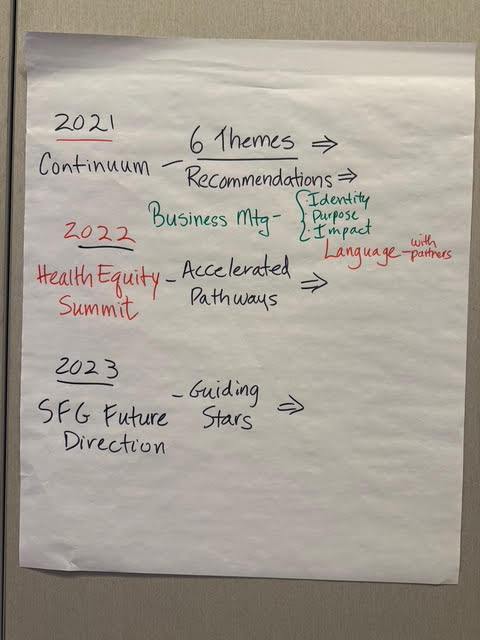 2021
6 Themes ⇒
Continuum –
Recommendations ⇒
Business Mtg – { · Identity
· Purpose
· Impact
2022
Language – with partners
Health Equity – Accelerated
Summit
Pathways ⇒
2023
– Guiding
SFG Future
Stars ⇒
Direction